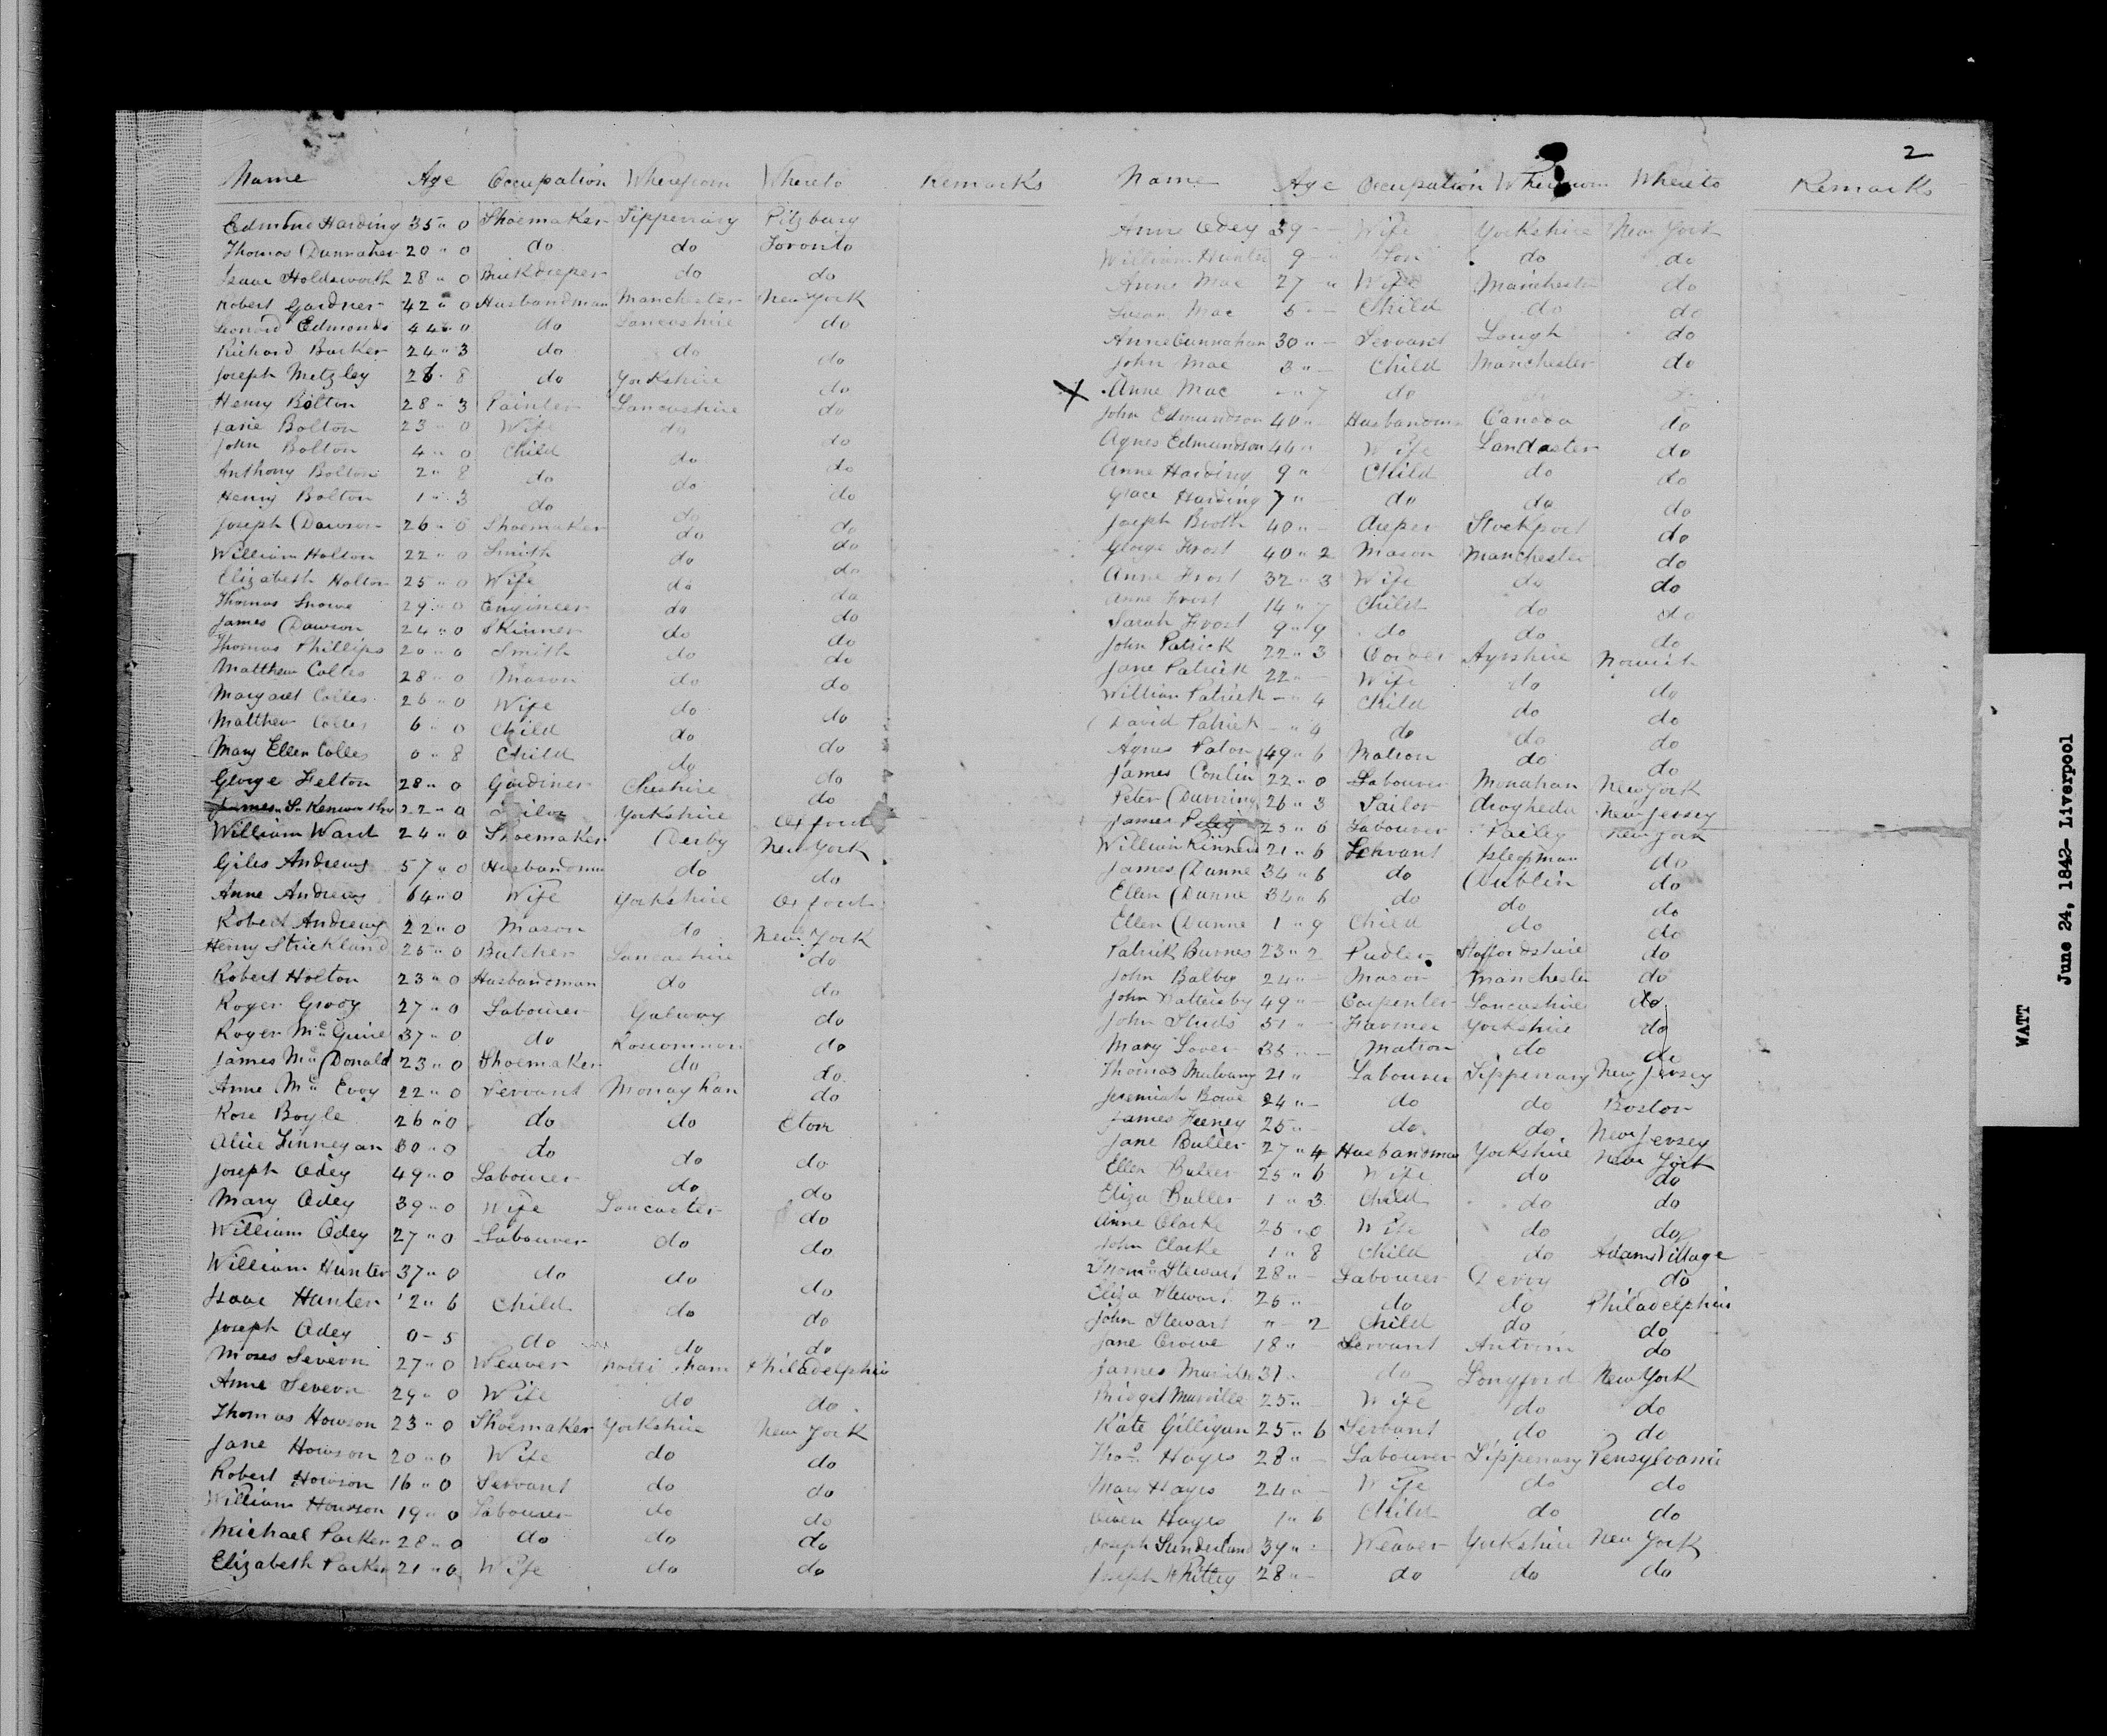 2
Name Age Occupation Wherefrom Whereto Remarks
Edmond Harding 35 " 0 Shoemaker Tipperrary Pitzburg
Thomas Dunnaher 20 " 0 do do Toronto
Isaac Holdsworth 28 " 0 do do
Robert Gardner 42 " 0 Husbandman Manchester New York
Leonard Edmonds 44 " 0 do Lancashire do
Richard Barker 24 " 3 do do do
Joseph Metzley 26 " 8 do Yorkshire do
Henry Bolton 28 " 3 Painter Lancashire do
Jane Bolton 23 " 0 Wife do do
John Bolton 4 " 0 Child do do
Anthony Bolton 2 " 8 do do do
Henry Bolton 1 " 3 do do do
Joseph Dawson 26 " 0 Shoemaker do do
William Holton 22 " 0 Smith do do
Elizabeth Holton 25 " 0 Wife do do
Thomas Snowe 29 " 0 Engineer do do
James Dawson 24 " 0 Skinner do do
Thomas Phillips 20 " 0 Smith do do
Matthew Colles 28 " 0 Mason do do
Margaret Colles 26 " 0 Wife do do
Matthew Colles 6 " 0 Child do do
Mary Ellen Colles 0 " 8 Child do do
George Felton 28 " 0 Gardiner Cheshire do
22 " 0 Yorkshire Oxford
William Ward 24 " 0 Shoemaker Derby New York
Giles Andrews 57 " 0 Husbandman do do
Anne Andrews 64 " 0 Wife Yorkshire Oxford
Robert Andrews 22 " 0 Mason do New York
Henry Strickland 25 " 0 Butcher Lancashire do
Robert Holton 23 " 0 Husbandman do do
Roger 27 " 0 Labourer Galway do
Roger McGuire 37 " 0 do Roscommon do
James McDonald 23 " 0 Shoemaker do do
Anne McEvoy 22 " 0 Servant Monaghan do
Rose Boyle 26 " 0 do do
Alice Finnegan 30 " 0 do do do
Joseph Odey 49 " 0 Labourer do do
Mary Odey 39 " 0 Wife Lancaster do
William Odey 27 " 0 Labourer do do
William Hunter 37 " 0 do do do
Isaac Hunter 2 " 6 Child do do
Joseph Odey 0 - 5 do do do
Moses Severn 27 " 0 Weaver Philadelphia
Anne Severn 29 " 0 Wife do do
Thomas Howson 23 " 0 Shoemaker Yorkshire New York
Jane Howson 20 " 0 Wife do do
Robert Howson 16 " 0 Servant do do
William Howson 19 " 0 Labourer do do
Michael Parker 28 " 0 do do do
Elizabeth Parker 21 " 0 Wife do do
Name Age Occupation Wherefrom Whereto Remarks
Anne Odey 39 Wife Yorkshire New York
William Hunter 9 Son do do
Anne Mac 27 Wife Manchester do
Susan Mac 5 Child do do
Anne Cunnahan 30 Servant Lough do
John Mac 3 Child Manchester do
X Anne Mac 7 do
John Edmundson 40 Husbandman Canada do
Agnes Edmundson 44 Wife Landcaster do
Anne Harding 9 Child do do
Grace Harding 7 do do do
Joseph Booth 40 Stockport do
George Frost 40 " 2 Mason Manchester do
Anne Frost 32 " 3 Wife do do
Anne Frost 14 " 7 Child do do
Sarah Frost 9 " 9 do do do
John Patrick 22 " 3 Ayrshire Norwich
Jane Patrick 22 Wife do do
William Patrick 4 Child do do
David Patrick 4 do do do
Agnes Paton 49 " 6 Matron do do
James Conlin 22 " 0 Labourer Monahan New York
Peter Dunning 26 " 3 Sailor drogheda New Jersey
James 25 " 6 Labourer New York
William Kinnead 21 " 6 Servant Isleofman do
James Dunne 34 " 6 do Dublin do
Ellen Dunne 34 " 6 do do do
Ellen Dunne 1 " 9 Child do do
Patrick Burnes 23 " 2 Pudler Staffordshire do
John Balbey 24 Mason Manchester do
John 49 Carpenter Lancashire do
John Studs 51 Farmer Yorkshire do
Mary Lover 35 Matron do do
Thomas Mulvany 21 Labourer Tippenary New Jersey
Jeremiah Bowe 24 do do Boston
James Feeney 25 do do New Jersey
Jane Buller 27 " 4 Husbandman Yorkshire New York
Ellen Buller 25 " 6 Wife do do
Eliza Buller 1 " 3 Child do do
Anne Clarke 25 " 0 Wife do do
John Clarke 1 " 8 Child do Adams Village
Thomas Stewart 28 Labourer Derry do
Eliza Stewart 26 do do Philadelphia
John Stewart " - 2 Child do do
Jane Crowe 18 Servant Antrim do
James 31 do Longford New York
Bridget 25 Wife do do
Kate Gilligan 25 " 6 Servant do do
Thos Hayes 28 Labourer Tippenary Pensylvania
Mary Hayes 24 Wife do do
Owen Hayes 1 " 6 Child do do
Joseph Sunderland 39 Weaver Yorkshire New York
Joseph Whitley 28 do do do
WATT
June 24, 1842- Liverpool